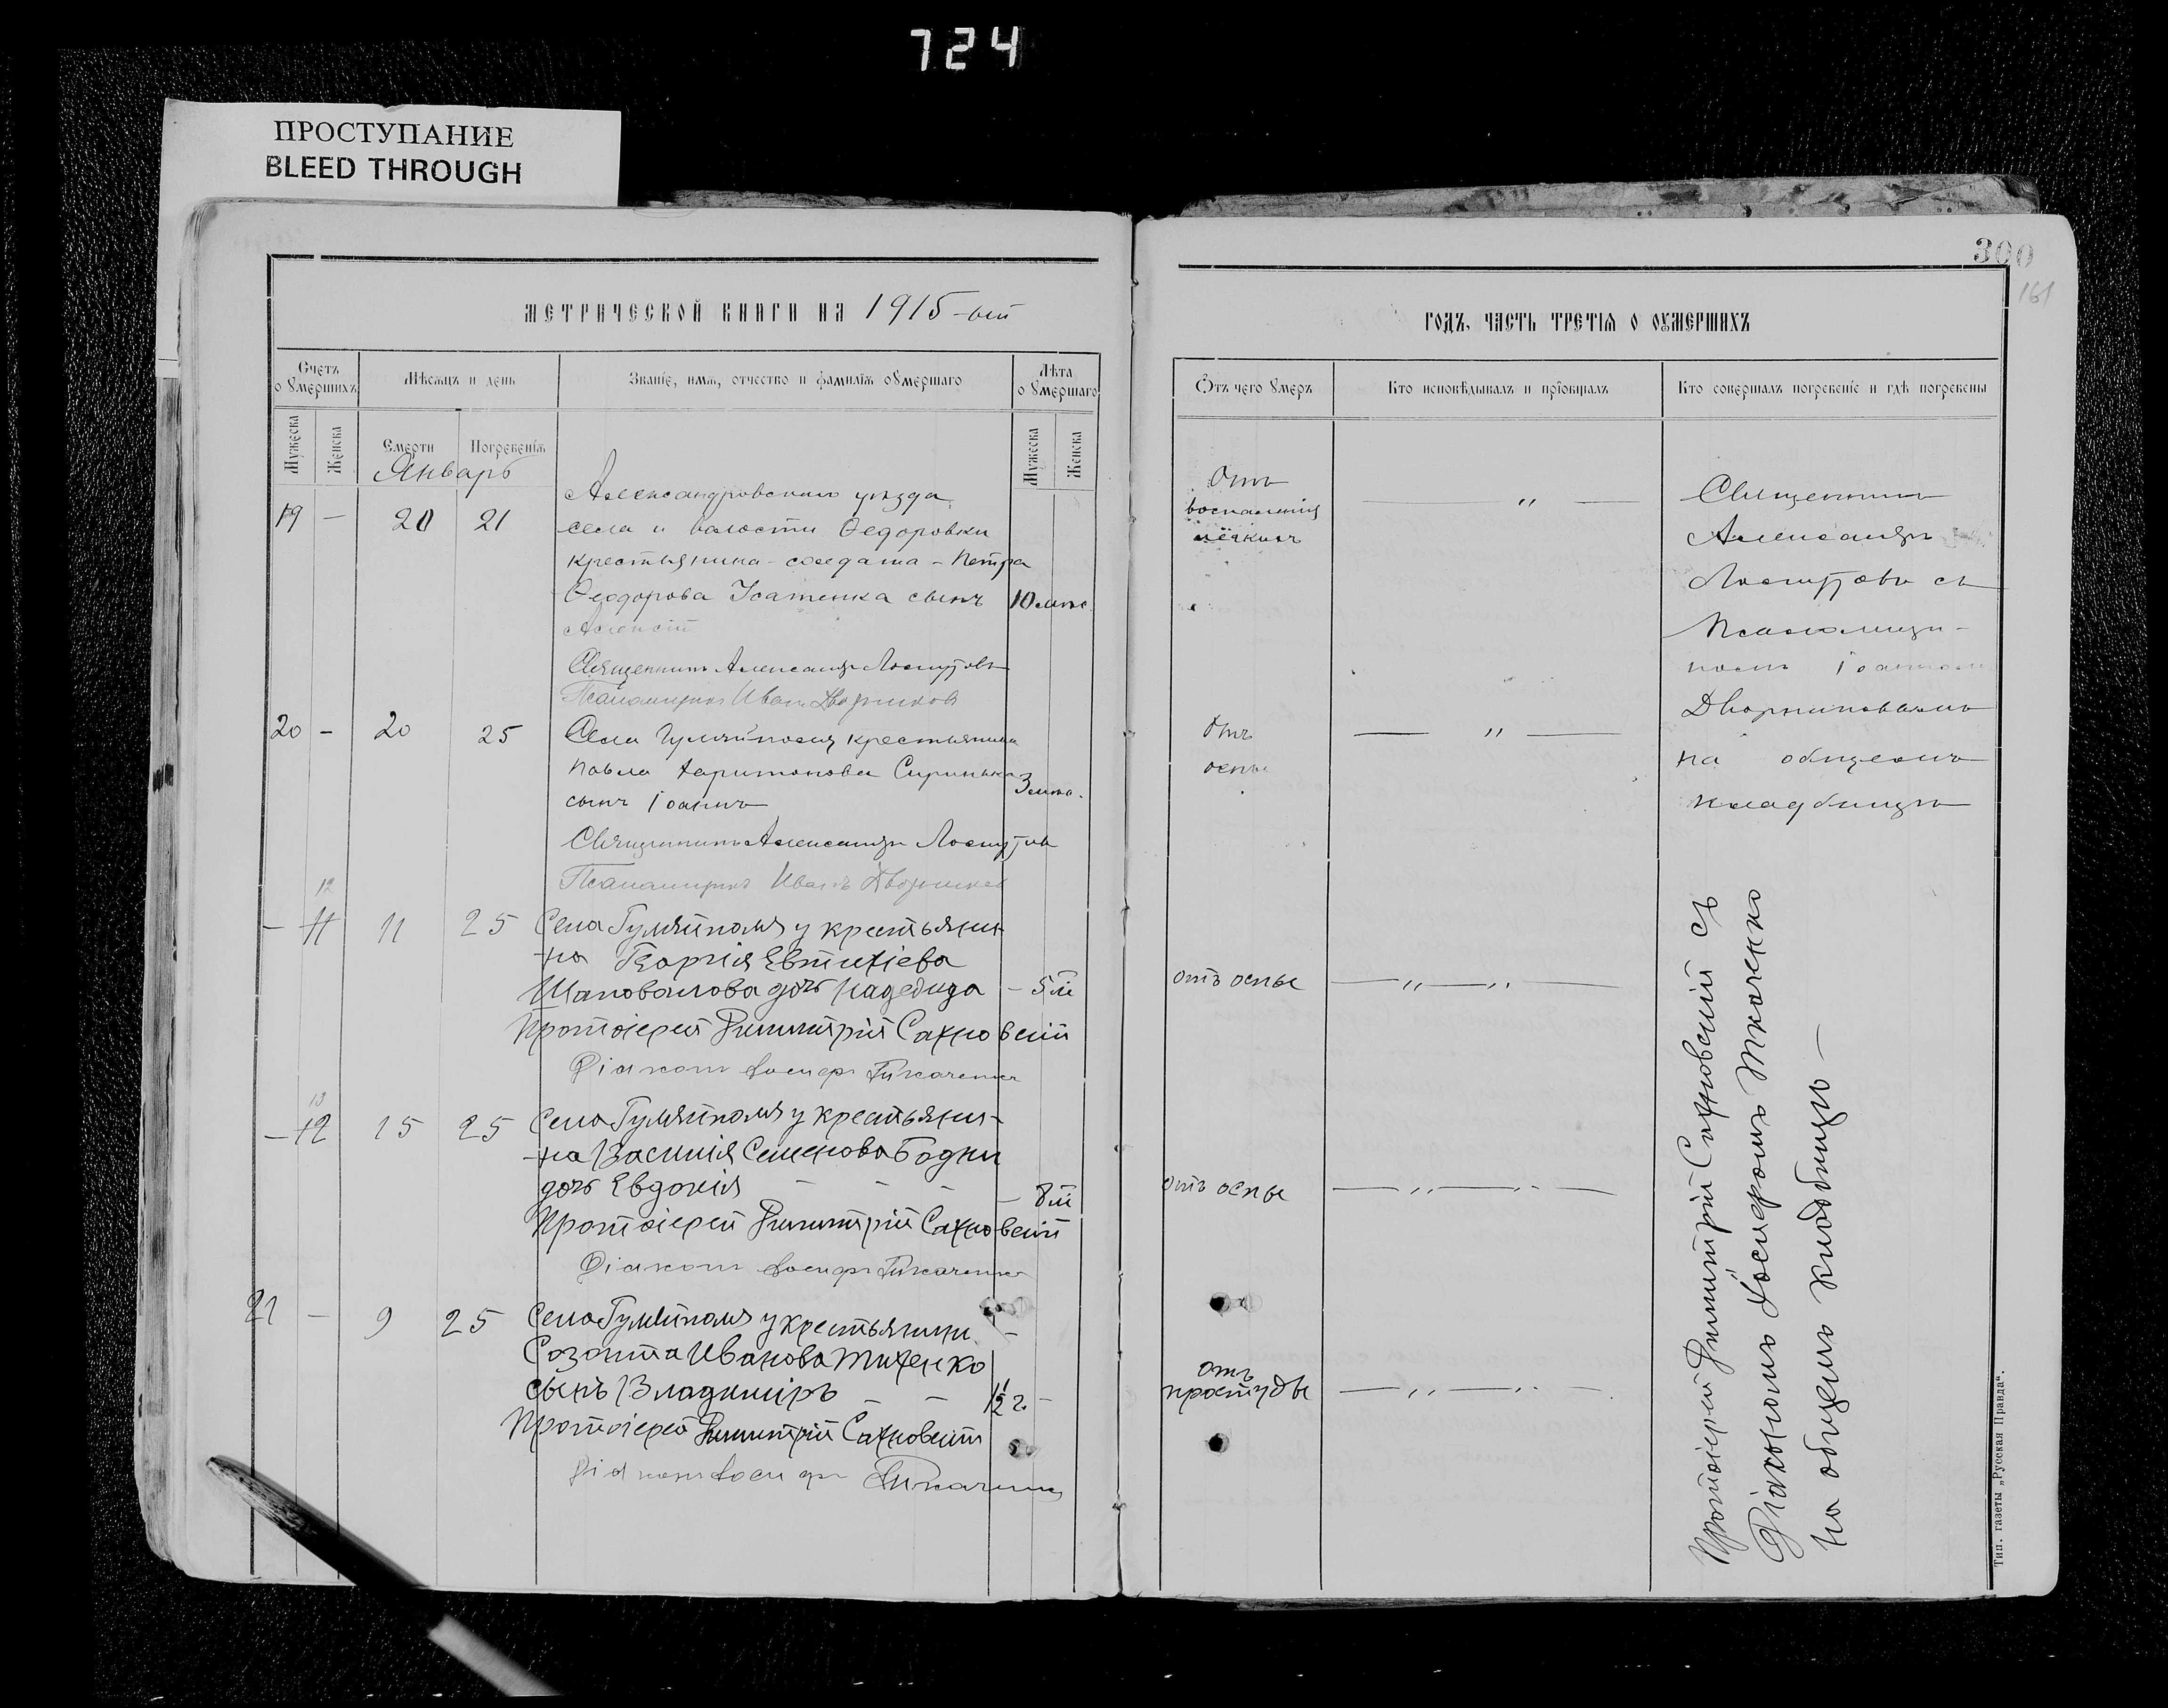 724
ПРОСТУПАНИЕ
BLEED THROUGH
300
161
МЕТРИЧЕСКОЙ КНИГИ НА 1915-ый
Счетъ оумершихъ
Мѣсяцъ и день
Званіе, имя, отчество и фамилія оумершаго
Лѣта оумершаго
Мужеска
Женска
Смерти
Погребенія
Мужеска
Женска
Январь
19 — 20 21
Александровскаго уѣзда
села и волости Ѳедоровки
крестьянина-солдата-Петра
Ѳеодорова Усатенка сынъ 10 мѣс.
Алексій
Священникъ Александръ Лоскутовъ
Псаломщикъ Иванъ Дворников
20 — 20 25
Села Гуляйполя крестьянина
Павла Харитонова
сынъ Іоаннъ
Священникъ Александръ Лоскутовъ
Псаломщикъ Иванъ Дворников
12
— 11 11 25 Села Гуляйполя у крестьяни-
на Георгія Евтихіева
Шаповалова дочь Надежда — 5 м
Протоіерей Димитрій Сахновскій
Діаконъ Іосифъ Ткаченко
13
— 12 15 25 Села Гуляйполя у крестьяни-
на Василія Семенова Бодни
дочь Евдокія — — — — 8 м
Протоіерей Димитрій Сахновскій
Діаконъ Іосифъ Ткаченко
21 — 9 25 Села Гуляйполя у крестьянина
Созонта Иванова Тихенко
сынъ Владиміръ — — 1½ г. —
Протоіерей Димитрій Сахновскій
Діаконъ Іосифъ Ткаченко
ГОДЪ, ЧАСТЬ ТРЕТІЯ О ОУМЕРШИХЪ
Отъ чего умеръ
Кто исповѣдывалъ и пріобщалъ
Кто совершалъ погребеніе и гдѣ погребены
Отъ
воспаленія — „ —
лёгкихъ
Отъ — „ —
оспы
отъ оспы — „ — „ —
отъ оспы — „ — „ —
отъ
простуды — „ — „ —
Священникъ
Александръ
Лоскутовъ съ
Псаломщи-
комъ Іоанномъ
Дворниковымъ
на общемъ
кладбищѣ
Протоіерей Димитрій Сахновскій съ
Діакономъ Іосифомъ Ткаченко
на общемъ кладбищѣ —
Тип. газеты „Русская Правда“.